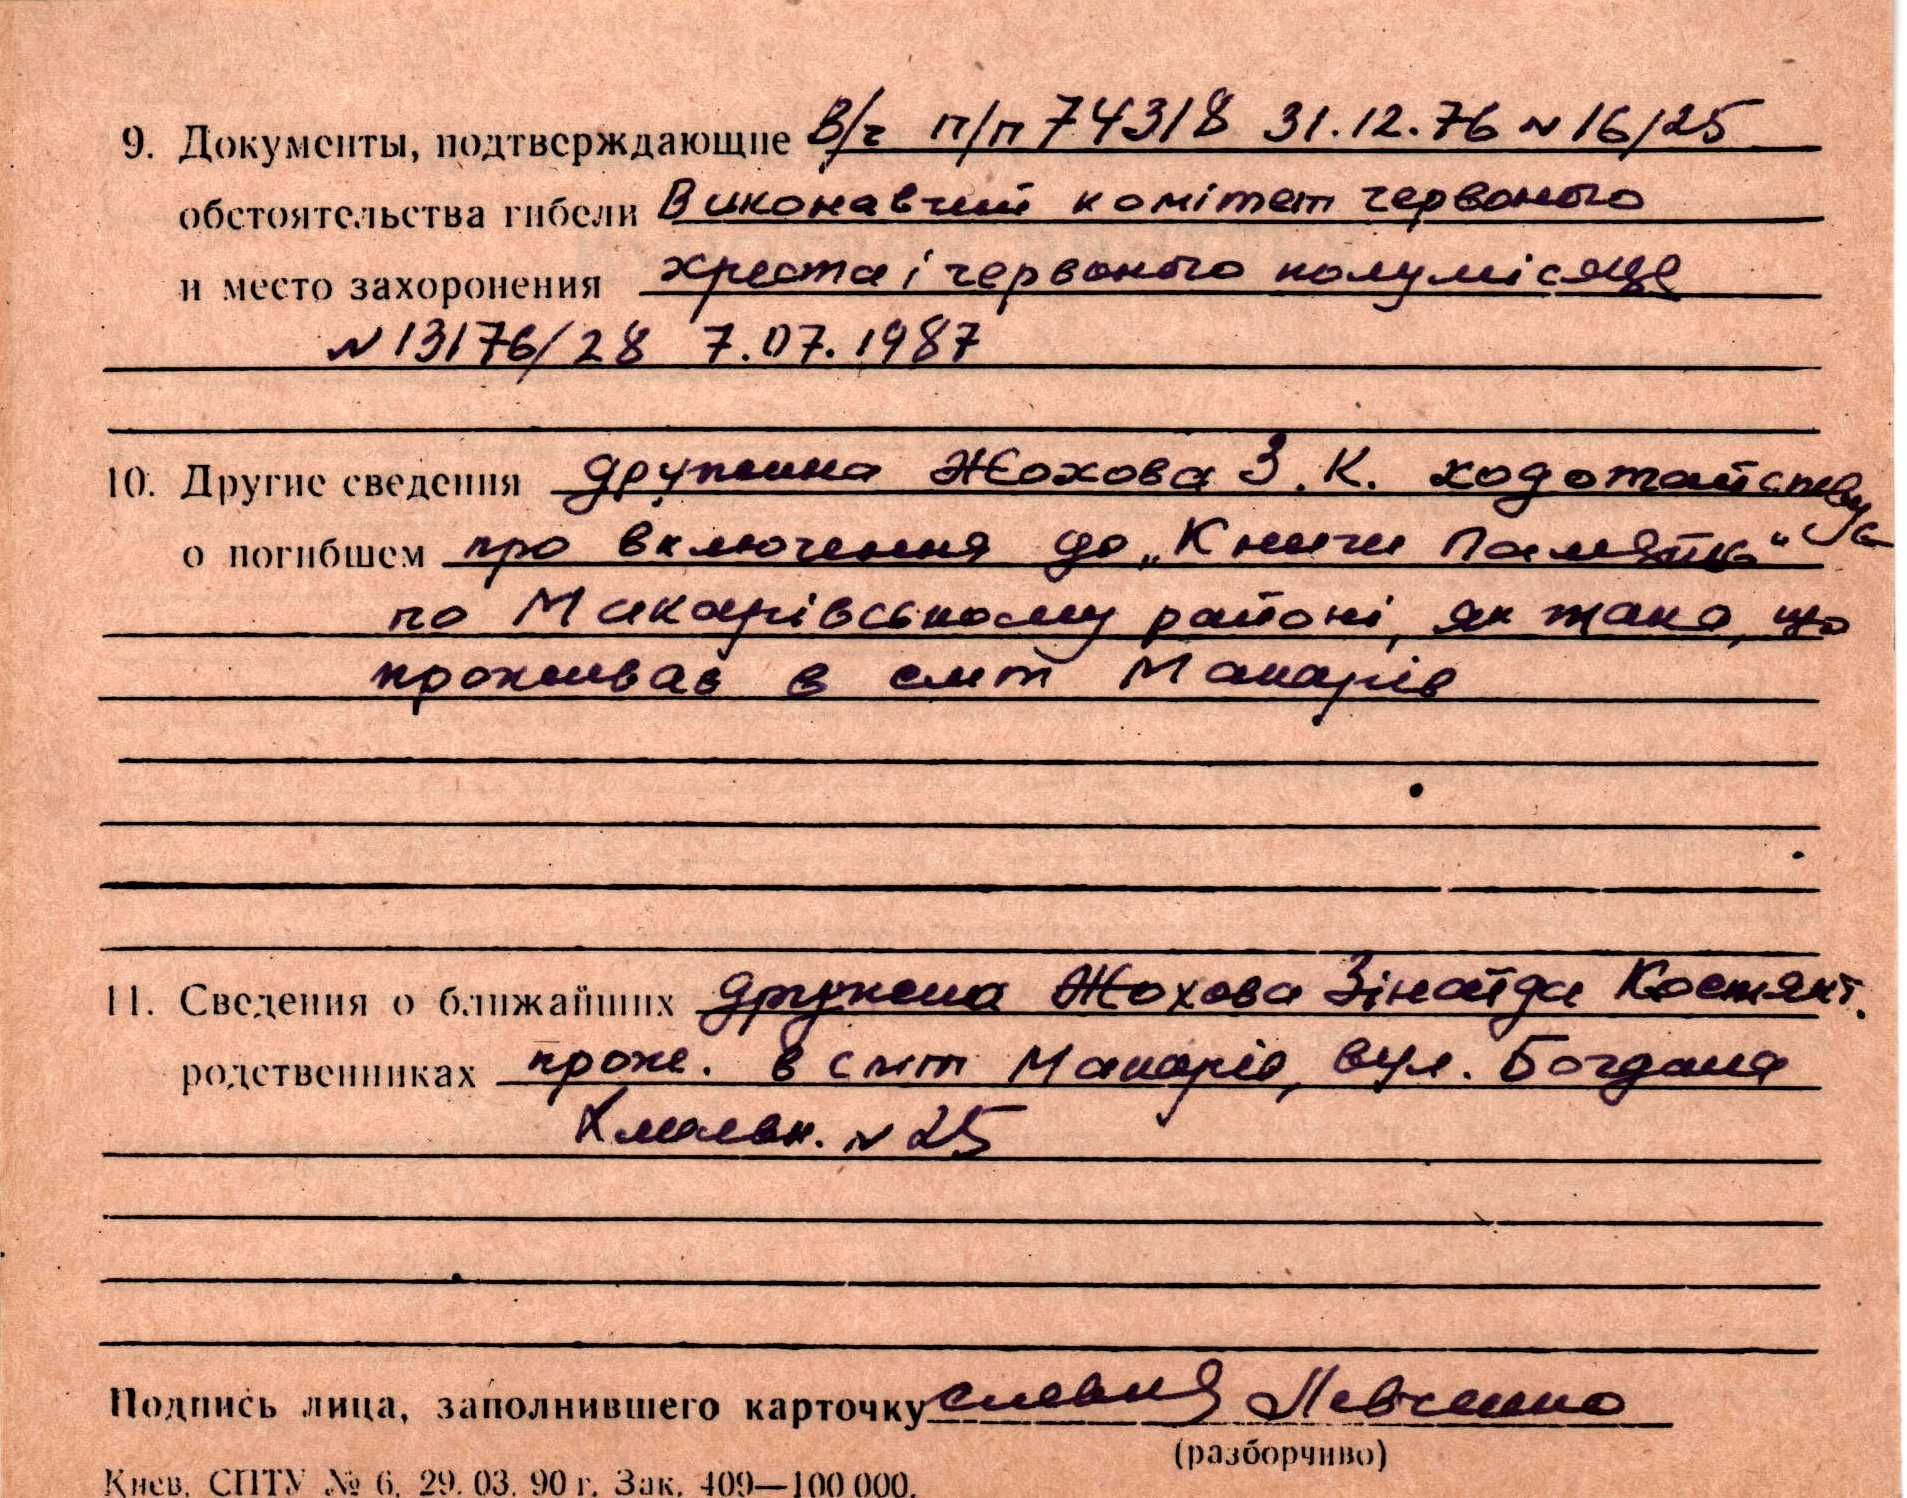 9. Документы, подтверждающие В/ч п/п 74318 31.12.76 № 16/25
обстоятельства гибели Виконавчий комітет червоного
и место захоронения хреста і червоного полумісяце
№ 13176/28 7.07.1987
10. Другие сведения дружина Жохова З.К. ходотайствує
о погибшем про включення до „Книги Памяти“
по Макарівському районі, як тако, що
проживав в смт Макарів
11. Сведения о ближайших дружина Жохова Зінаїда Костянт.
родственниках прож. в смт Макарів, вул. Богдана
Хмельн. № 25
Подпись лица, заполнившего карточку Левченко
(разборчиво)
Киев. СПТУ № 6. 29. 03. 90 г. Зак. 409—100 000.